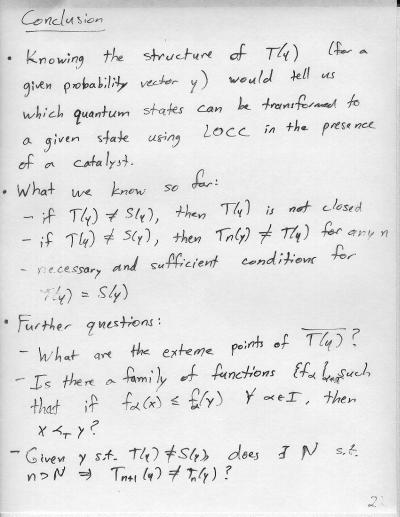 Conclusion
• Knowing the structure of T(y) (for a
given probability vector y) would tell us
which quantum states can be transformed to
a given state using LOCC in the presence
of a catalyst.
• What we know so far:
– if T(y) ≠ S(y), then T(y) is not closed
– if T(y) ≠ S(y), then Tn(y) ≠ T(y) for any n
– necessary and sufficient conditions for
T(y) = S(y)
• Further questions:
– What are the exteme points of T(y)?
– Is there a family of functions {fα} such
that if fα(x) ≤ fα(y) ∀ α∈I, then
x <T y?
– Given y s.t. T(y) ≠ S(y), does ∃ N s.t.
n>N ⇒ Tn+1(y) ≠ Tn(y)?